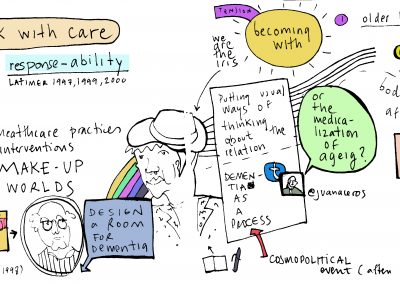 K WITH CARE
response-ability
LATIMER 1997, 1999, 2000
healthcare practices
interventions
MAKE-UP
WORLDS
DESIGN
a ROOM
FOR
DEMENTIA
1998)
TENSION
we
are
THE
IRIS
becoming
with
Putting usual
WAYS OF
thinking
about the
relation
DEMEN-
TIA
AS
A
PROCESS
or
the
medica-
lization
OF
ageig?
@juanaceros
COSMOPOLITICAL
event (after
older
bod
af